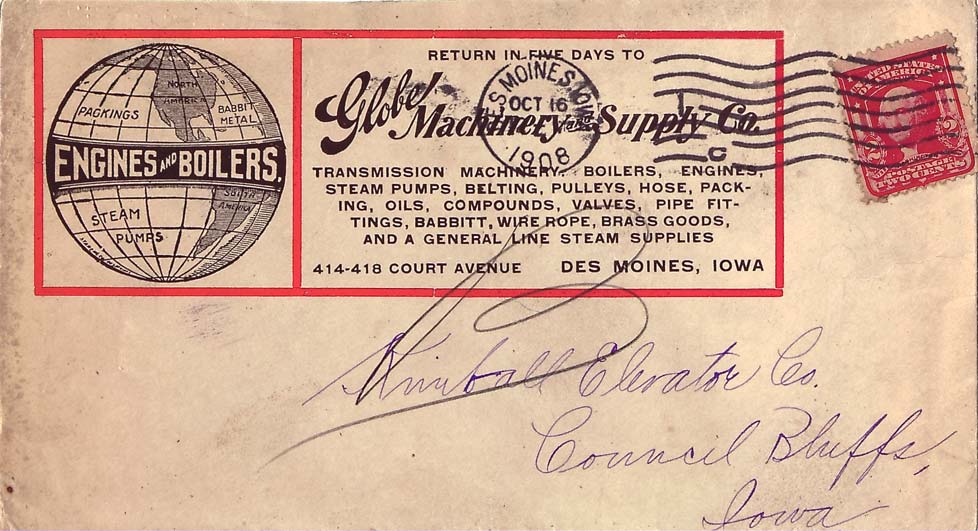 RETURN IN FIVE DAYS TO
Globe Machinery and Supply Co.
TRANSMISSION MACHINERY, BOILERS, ENGINES,
STEAM PUMPS, BELTING, PULLEYS, HOSE, PACK-
ING, OILS, COMPOUNDS, VALVES, PIPE FIT-
TINGS, BABBITT, WIRE ROPE, BRASS GOODS,
AND A GENERAL LINE STEAM SUPPLIES
414-418 COURT AVENUE DES MOINES, IOWA
NORTH
AMERICA
PACKINGS
BABBIT
METAL
ENGINES AND BOILERS.
SOUTH
AMERICA
STEAM
PUMPS
DES MOINES, IOWA
OCT 16
1908
C
UNITED STATES
OF AMERICA
2 2
POSTAGE
TWO CENTS
Kimball Elevator Co.
Council Bluffs,
Iowa